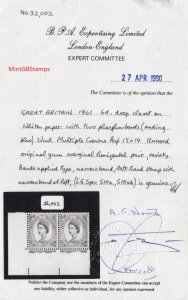 No. 32,002
B.P.A. Expertising Limited
London-England
EXPERT COMMITTEE
MintGBStamps
27 APR 1990
The Committee is of the opinion that the
GREAT BRITAIN 1961 6d. deep claret on
Whiten paper with two phosphor bands (
blue) Wmk Multiple Crowns Perf 15x14 Unused
original gum marginal horizontal pair, variety,
bands applied typo, narrow band, left hand stamp with
narrow band at left, (S.G. Spec. ) is genuine.
32,002
Neither the Company nor the members of the Expert Committee can accept
any liability, either collective or individual, for any opinion expressed.